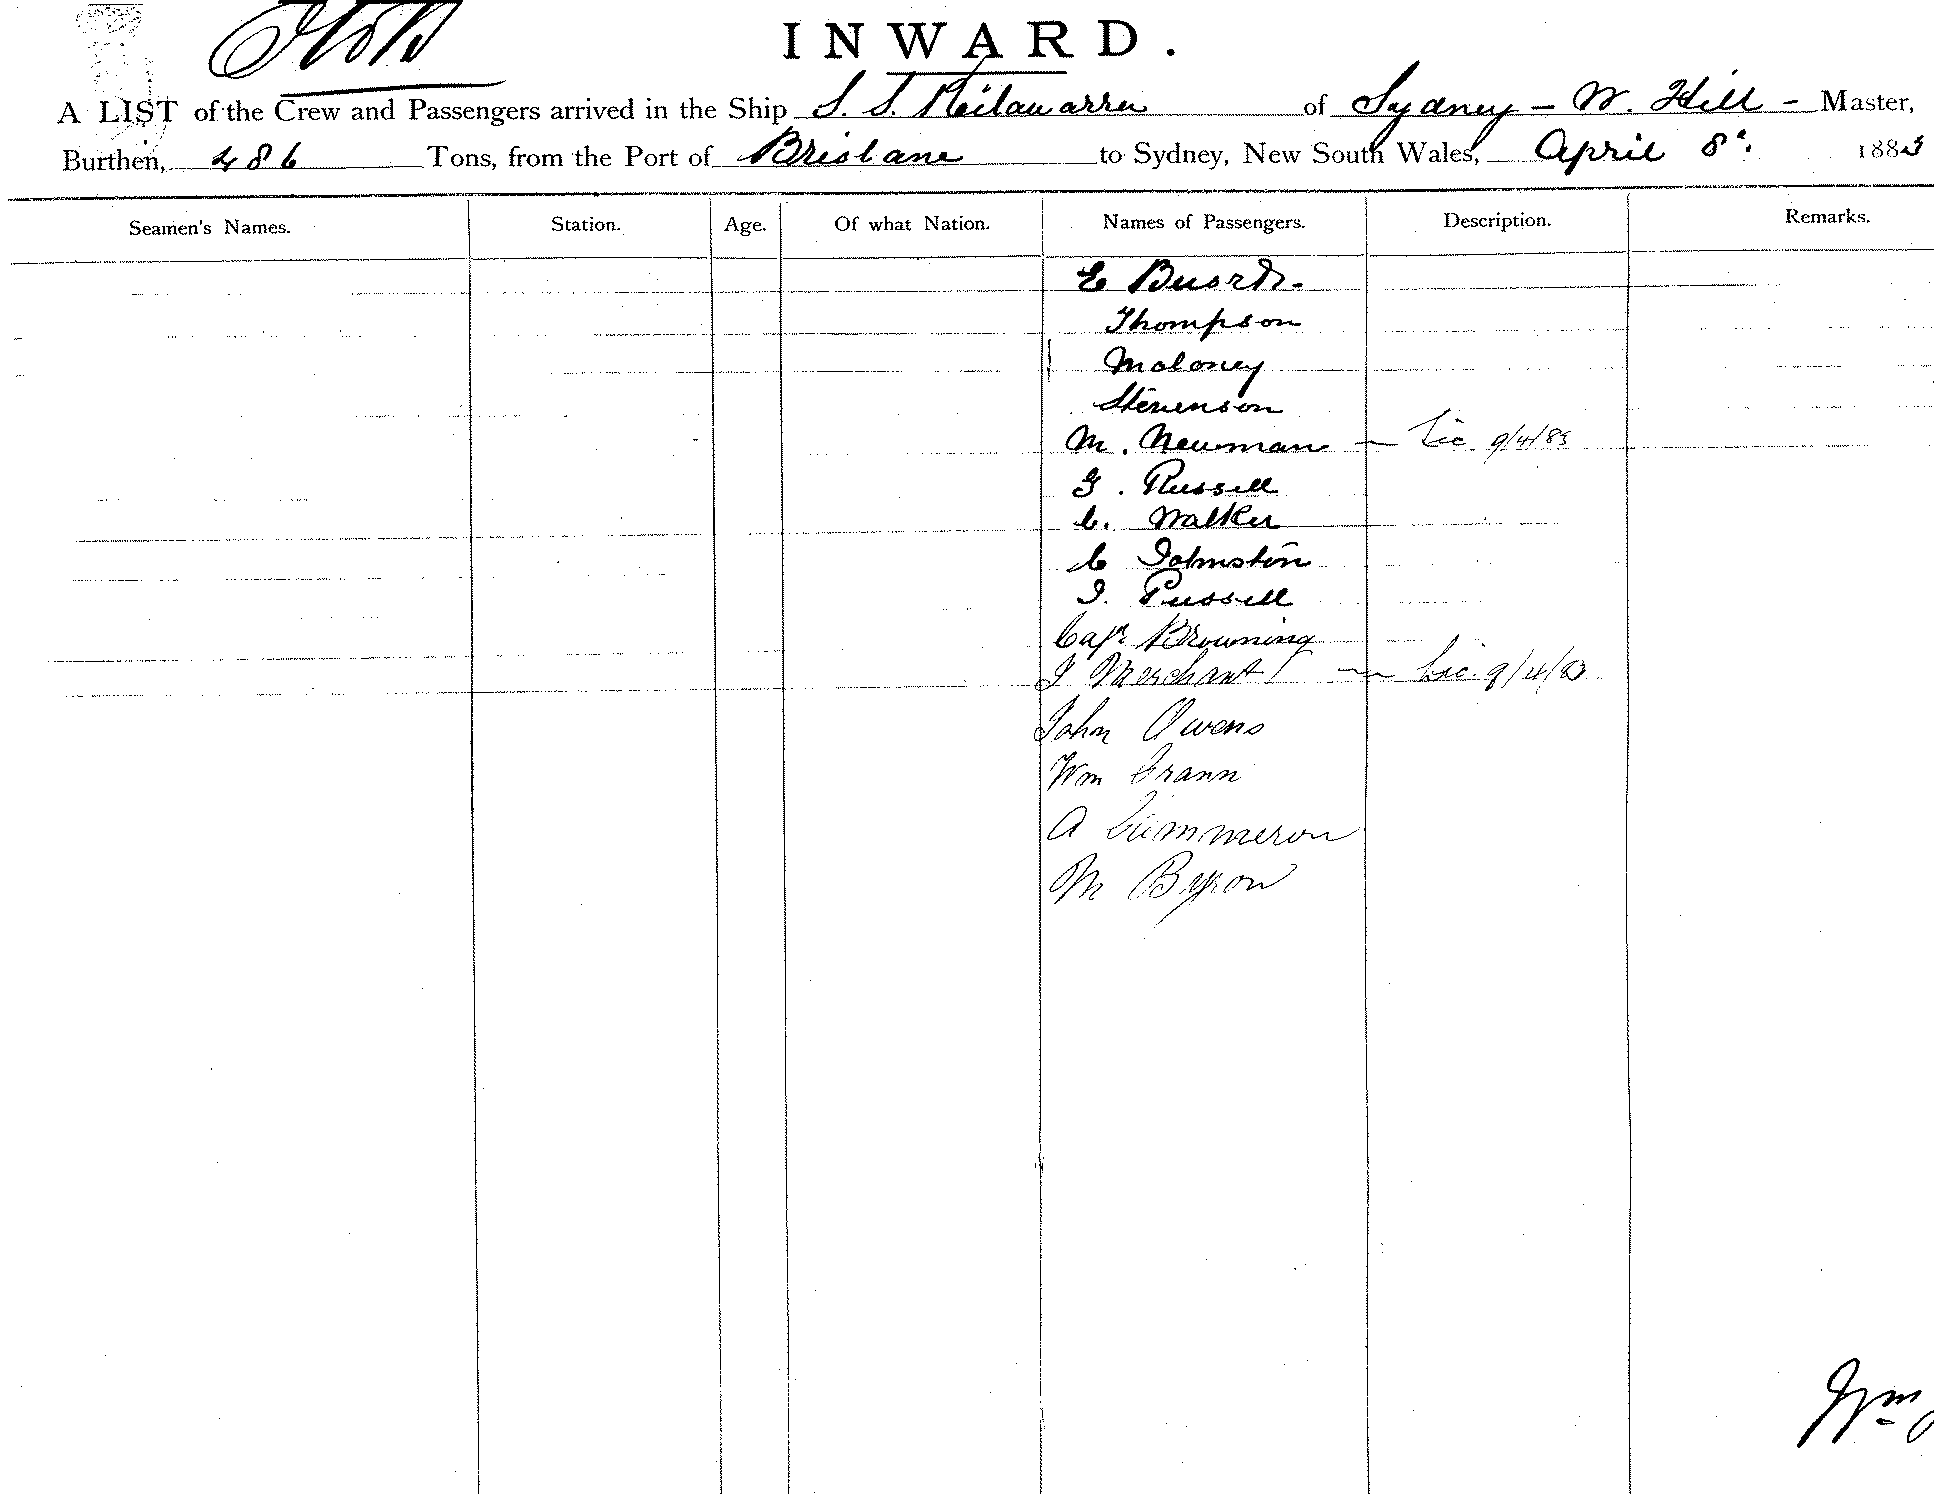 INWARD.
A LIST of the Crew and Passengers arrived in the Ship S. S. Keilawarra of Sydney - W. Hill - Master,
Burthen, 486 Tons, from the Port of Brisbane to Sydney, New South Wales, April 8th 1883
Seamen's Names. Station. Age. Of what Nation. Names of Passengers. Description. Remarks.
E
Thompson
Moloney
Stevenson
M. Newman - 9/4/83
G. Russell
C. Walker
C Johnston
J. Russell
Capt Browning
J Merchant - 9/4/83
John Owens
Wm Crann
A Cummeron
M Byron
Wm